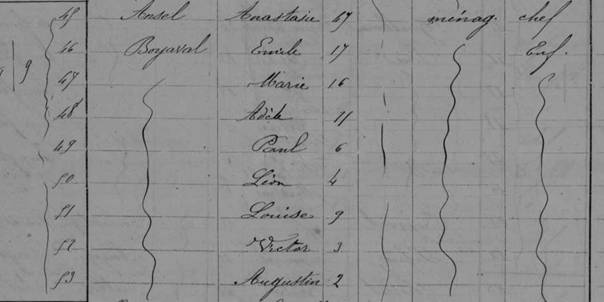 45 Ansel Anastasie 67 ménag. chef
46 Boyaval Emile 17 Enf.
9 47 Marie 16
48 Adèle 11
49 Paul 6
50 Léon 4
51 Louise 9
52 Victor 3
53 Augustin 2